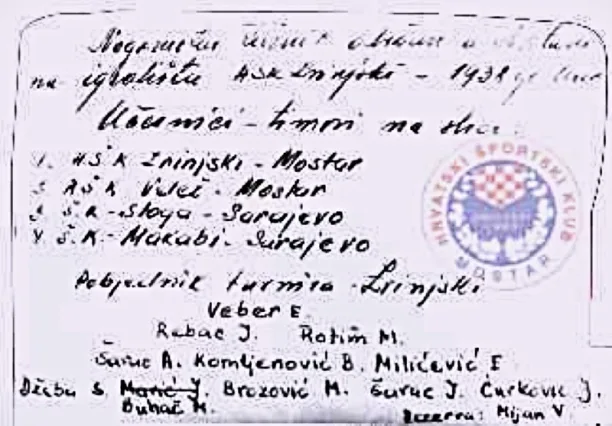 na igralištu HŠK Zrinjski - 1938
Učesnici - timovi na
1. HŠK Zrinjski - Mostar
2. RŠK Velež - Mostar
3. Š.K - Sloga - Sarajevo
4. Š.K - Makabi - Sarajevo
Pobjednik turnira - Zrinjski
Veber E.
Rebac J. Rotim M.
Šarac A. Komljenović B. Milićević E
Džeba S. Marić J. Brozović M. Šarac J. Ćurković J.
Buhač M.
Rezerva: Mijan V.
HRVATSKI SPORTSKI KLUB
MOSTAR